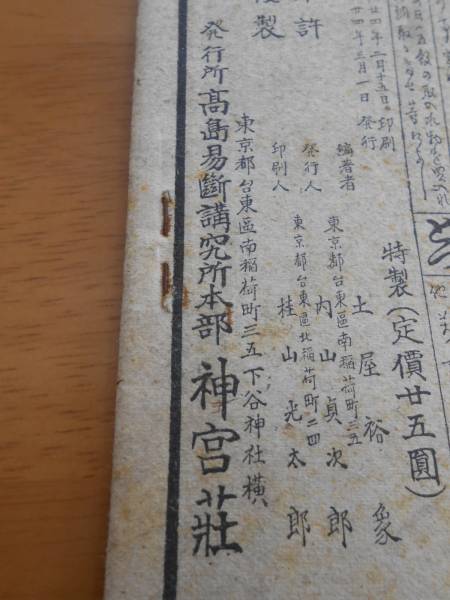 特製(定價廿五圓)
廿四年二月十五日 印刷
廿四年三月一日 発行
編著者 土屋裕象
東京都台東區南稲荷町三五
発行人 内山貞次郎
東京都台東區北稲荷町二四
印刷人 桂山光太郎
許
製
東京都台東區南稲荷町三五下谷神社横
発行所 高島易斷講究所本部 神宮莊